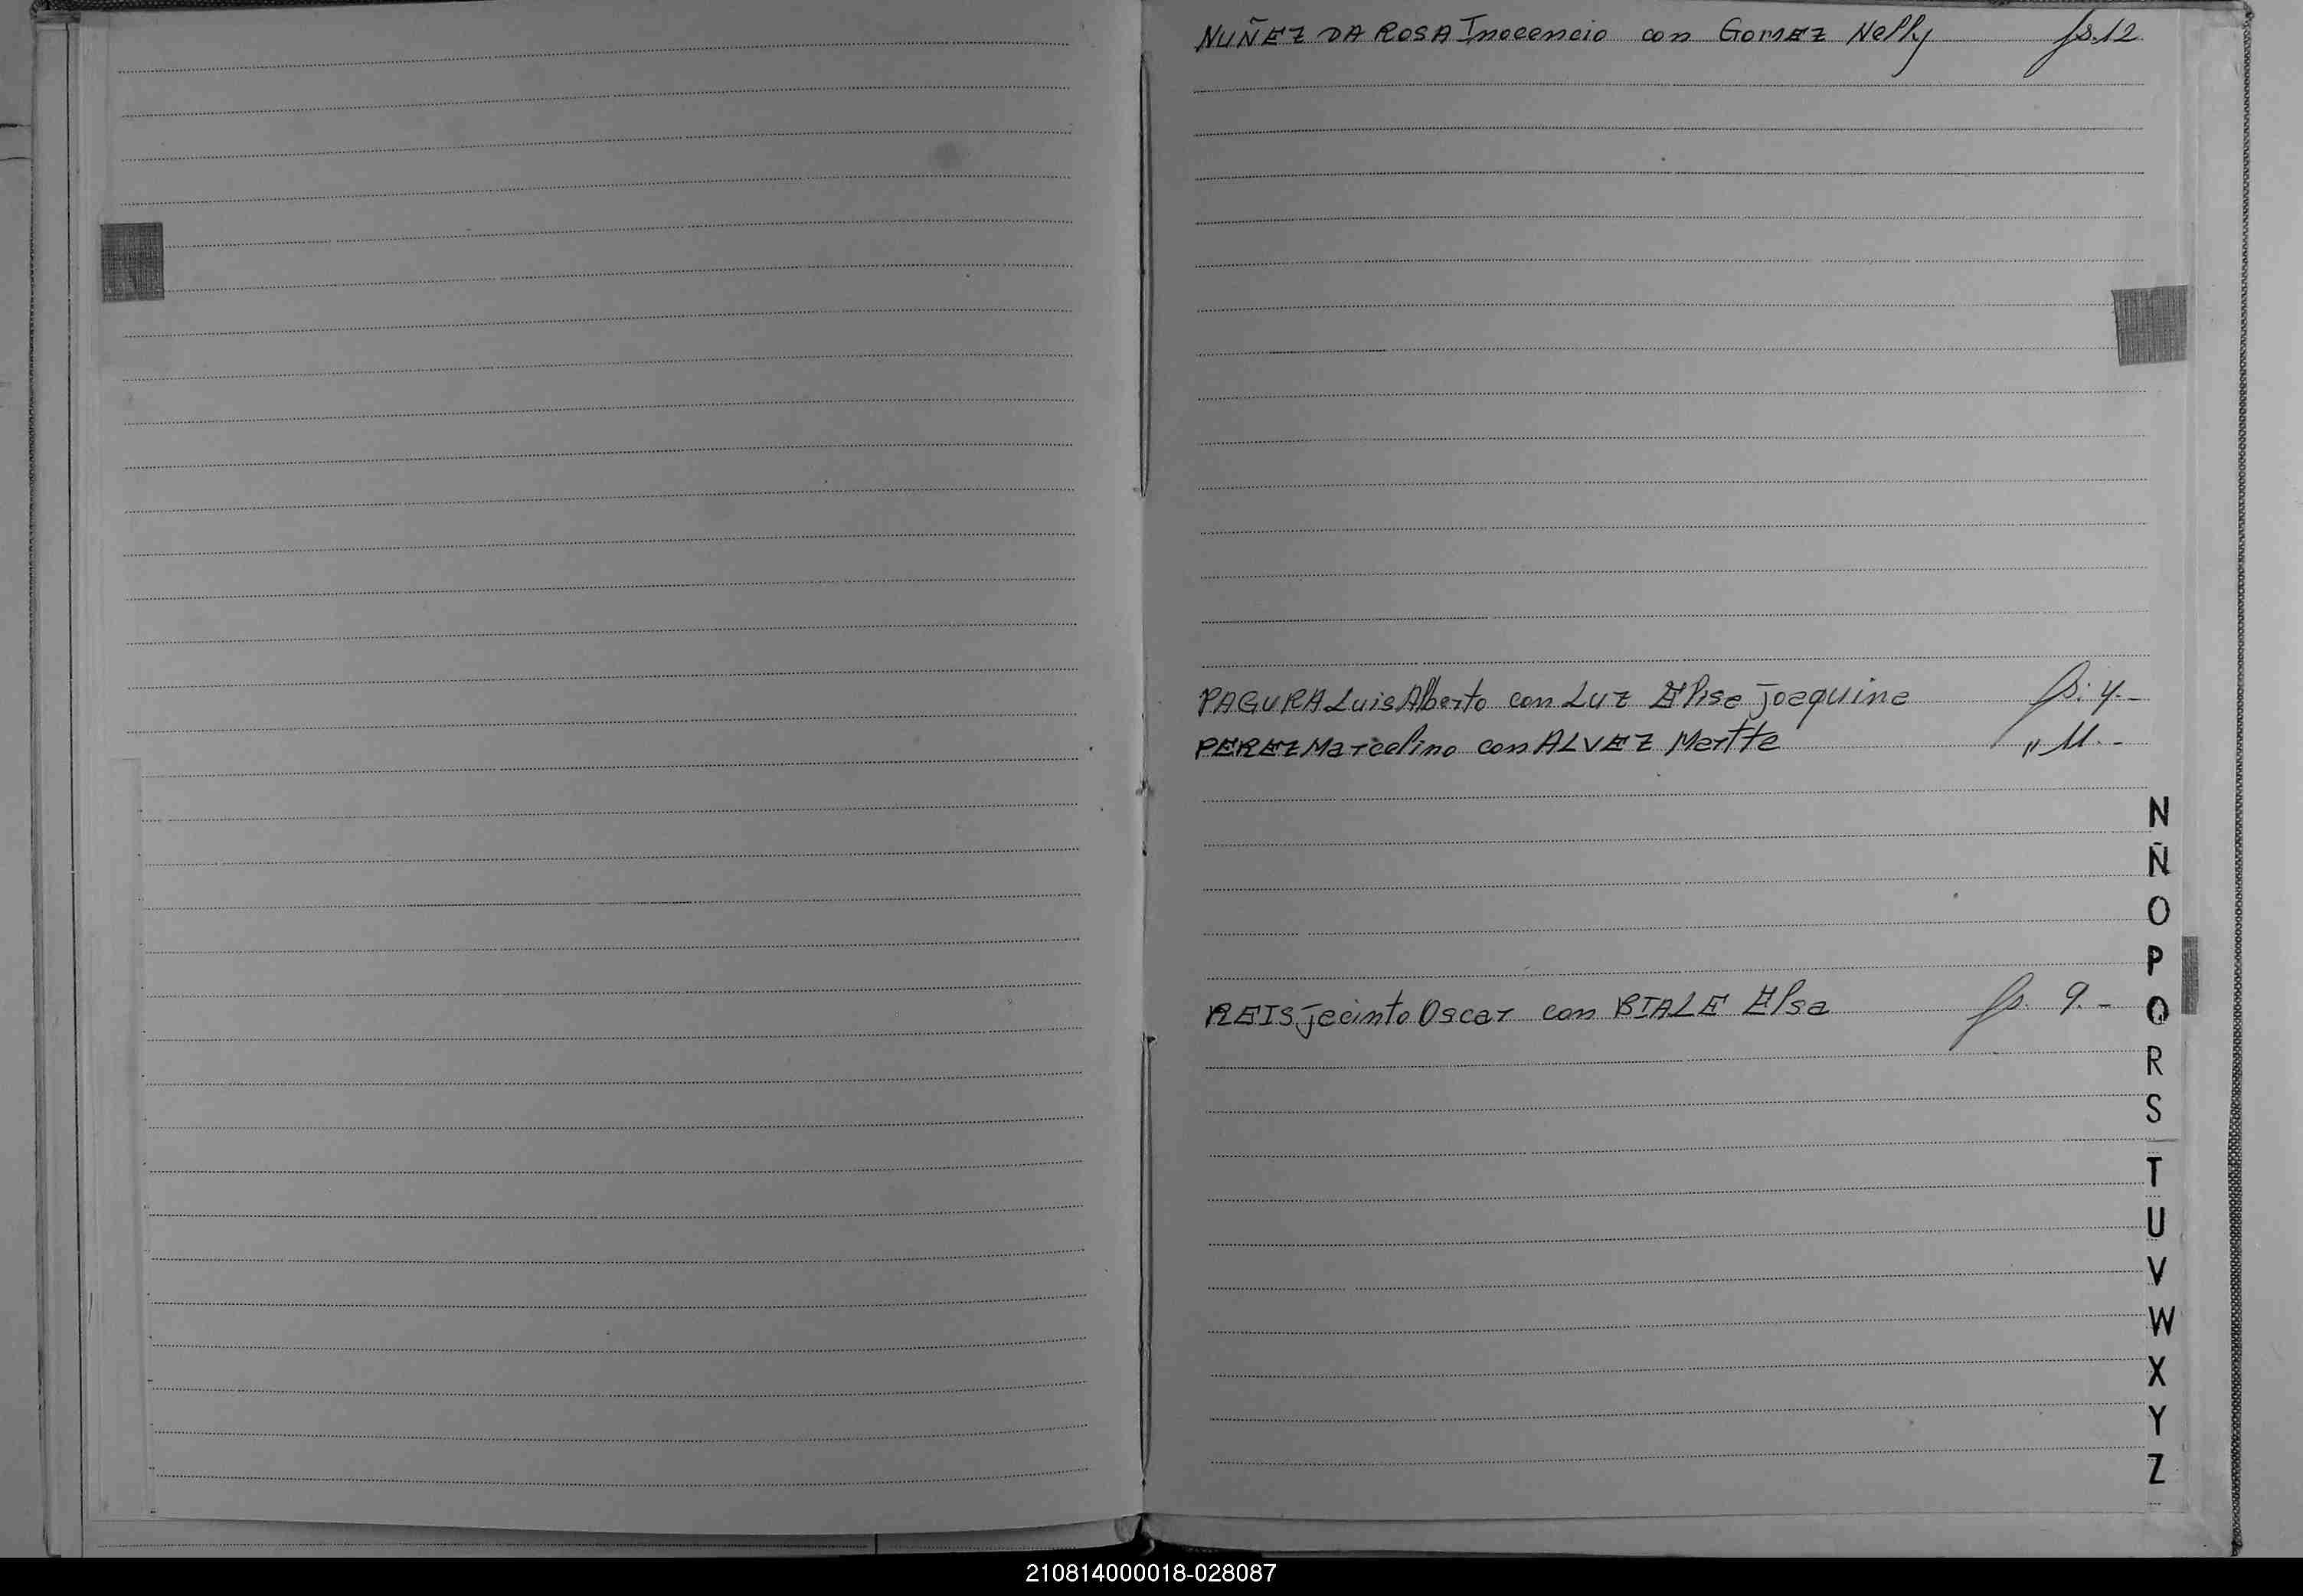 NUÑEZ DA ROSA Inocencio con GOMEZ Nelly fs.12
PAGURA Luis Alberto con LUZ Elisa Joaquina fs. 4.-
PEREZ Marcelino con ALVEZ Martta " 11.-
N
Ñ
O
P
Q
REIS Jacinto Oscar con BIALE Elsa fs. 9.-
R
S
T
U
V
W
X
Y
Z
210814000018-028087